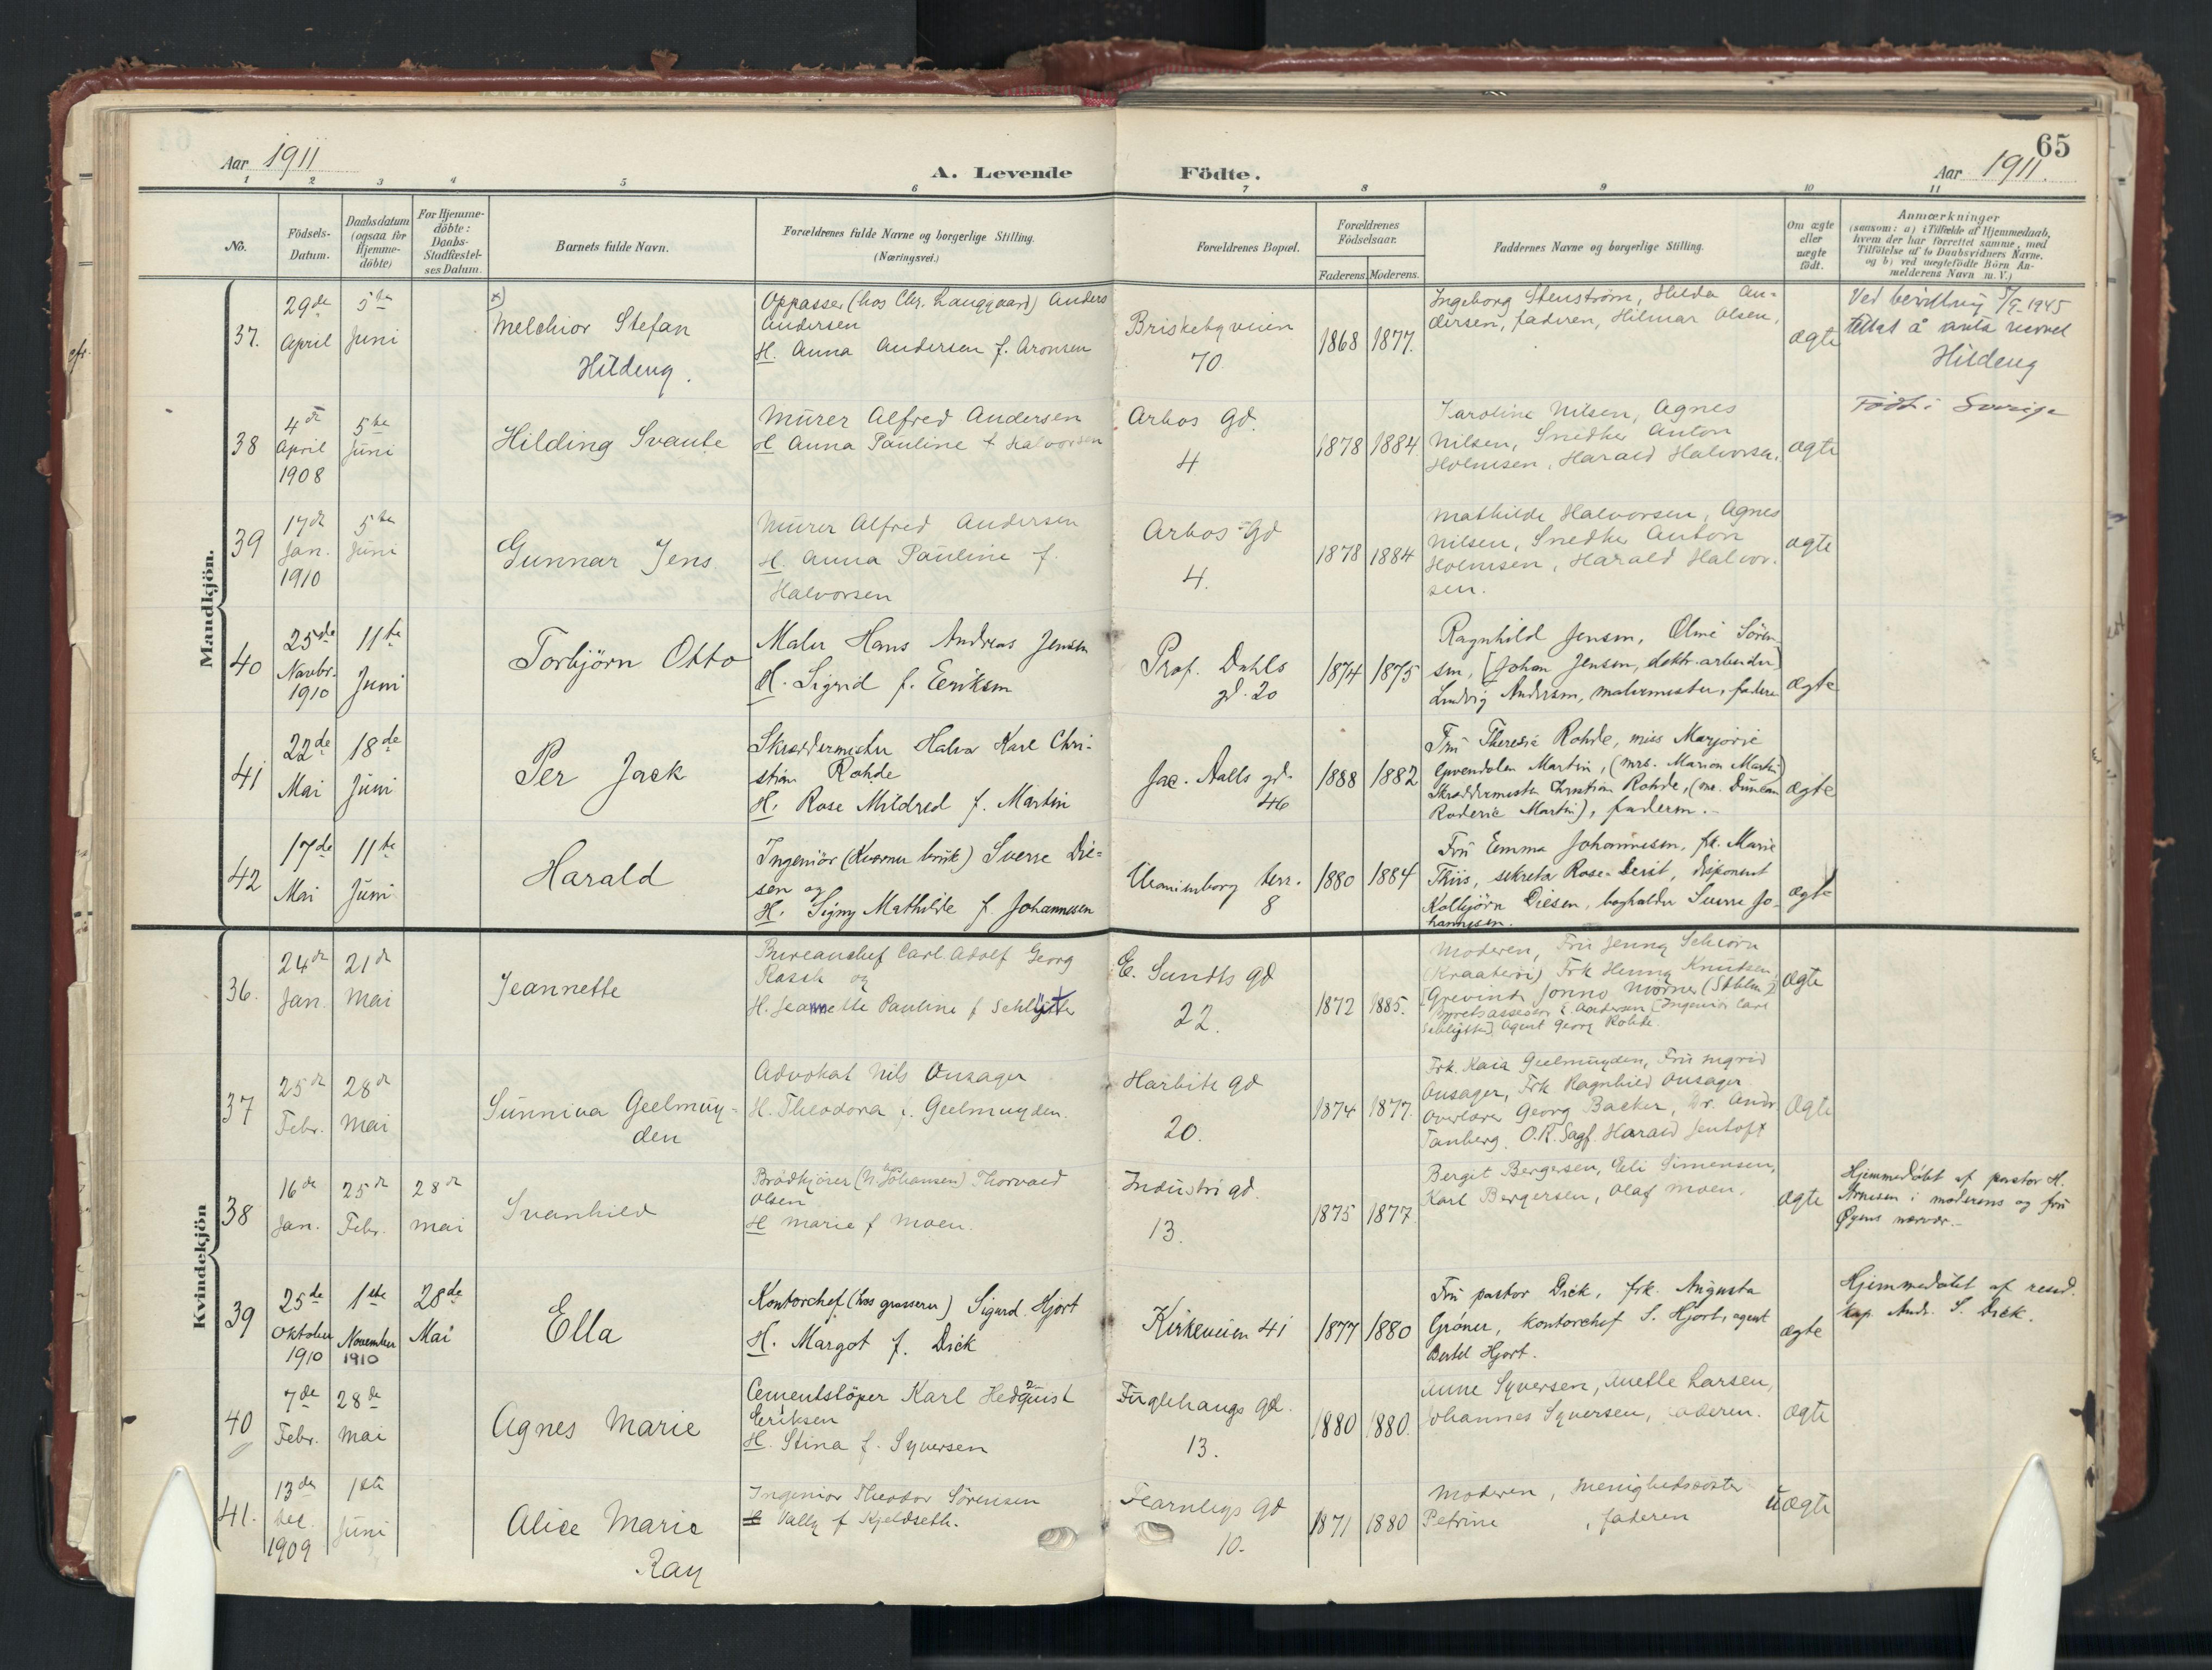 65
Aar 1911
A. Levende Födte.
Aar 1911.
1 2 3 4 5 6 7 8 9 10 11
No.
Födsels-
Datum.
Daabsdatum
(ogsaa for
Hjemme-
döbte)
For Hjemme-
döbte:
Daabs-
Stadfæstel-
ses Datum.
Barnets fulde Navn.
Forældrenes fulde Navne og borgerlige Stilling.
(Næringsvei.)
Forældrenes Bopæl.
Forældrenes
Födselsaar.
Faderens. Moderens.
Faddernes Navne og borgerlige Stilling.
Om ægte
eller
uægte
født.
Anmærkninger
(saasom: a) i Tilfælde af Hjemmedaab,
hvem der har forrettet samme, med
Tilföielse af to Daabsvidners Navne,
og b) ved uægtefödte Börn An-
melderens Navn m. V.)
Mandkjön.
37.
29de
April
5te
Juni
x)
Melchior Stefan
Hildeng.
Oppasser (hos Chr. Langgaard) Anders
Andersen
H. Anna Andersen f. Aronsen
Briskebyveien
70.
1868
1877.
Ingeborg Stenström, Hilda An-
dersen, faderen, Hilmar Olsen,
ægte
Ved bevilling 1945
tillat å anta navnet
Hildeng
38
4de
April
1908
5te
Juni
Hilding Svante
Murer Alfred Andersen
H. Anna Pauline f Halvorsen
Arbos Gd.
4
1878
1884.
Karoline Nilsen, Agnes
Nilsen, Snedker Anton
Holmsen, Harald Halvorsen.
ægte
Född i Sverige
39
17de
Jan.
1910
5te
Juni
Gunnar Jens
Murer Alfred Andersen
H. Anna Pauline f.
Halvorsen
Arbos Gd
4.
1878
1884
Mathilde Halvorsen, Agnes
Nilsen, Snedker Anton
Holmsen, Harald Halvor-
sen.
ægte
40
25de
Novbr.
1910
11te
Juni
Torbjörn Otto
Maler Hans Andreas Jensen
H. Sigrid f. Eriksen
Prof. Dahls
gd. 20
1874
1875
Ragnhild Jensen, Oline Sören-
sen, [Johan Jensen, elektr. arbeider]
Ludvig Andersen, malermester, faderen
ægte
41
22de
Mai
18de
Juni
Per Jack
Skræddermester Halvor Karl Chri-
stian Rohde
H. Rose Mildred f. Martin
Jac. Aalls gd.
46
1888
1882
Fru Therese Rohde, miss Marjorie
Gwendolen Martin, (mrs. Marion Martin)
Skræddermester Christian Rohde, (mr. Duncan
Roderic Martin), faderen.
ægte
42
17de
Mai
11te
Juni
Harald
Ingeniör (Kværner bruk) Sverre Die-
sen og
H. Signy Mathilde f. Johannesen
Uranienborg terr.
8
1880
1884
Fru Emma Johannesen, frk. Marie
Thiis, sekretær Rosenqvist, disponent
Kolbjörn Diesen, bogholder Sverre Jo-
hannesen.
ægte
Kvindekjön
36.
24de
Jan.
21de
Mai
Jeannette
Bureauchef Carl Adolf Georg
Rasch og
H. Jeannette Pauline f Schlytter
E. Sundts gd
22.
1872
1885.
Moderen, Fru Jenny Schiörn
Frk Henny Knutsen,
[Grevinde Mörner (Sthlm)]
Byretsassessor E. Andersen [Ingeniör Carl
Schlytter], Agent Georg Rohde.
ægte
37
25de
Febr.
28de
Mai
Sunniva Geelmuy-
den
Advokat Nils Onsager
H. Theodora f. Geelmuyden.
Harbitz gd
20.
1874
1877.
Frk. Kaia Geelmuyden, Fru Ingrid
Onsager, Frk Ragnhild Onsager
Overlærer Georg Backer, Dr. Andr.
Tanberg, O.R. Sagf. Harald Jentoft
Ægte
38
16de
Jan.
25de
Febr.
28de
Mai
Svanhild
Brödkjörer (N. Johansen) Thorvald
Olsen
H Marie f Moen.
Industri gd.
13.
1875
1877.
Bergit Bergersen, Eli Simensen,
Karl Bergersen, Olaf Moen.
ægte
Hjemmedöbt af pastor H.
Arnesen i moderens og fru
Øyens nærvær.
39
25de
Oktober
1910
1ste
November
1910
28de
Mai
Ella
Kontorchef (hos grosserer) Sigurd Hjort
H. Margot f. Dick
Kirkeveien 41
1877
1880
Fru pastor Dick, frk. Augusta
Gröner, kontorchef S. Hjort, agent
Bertel Hjort.
ægte
Hjemmedöbt af resid.
kap. Andr. S. Dick.
40
7de
Febr.
28de
Mai
Agnes Marie
Cementstöper Karl Hedquist
Eriksen
H. Stina f. Syversen
Fuglehaugs gd.
13.
1880
1880.
Anne Syversen, Anette Larsen,
Johannes Syversen, faderen.
ægte
41.
13de
Dec.
1909
1ste
Juni
Alice Marie
Ray
Ingeniör Theodor Sörensen
Vally f Kjeldseth.
Fearnleys Gd
10.
1871
1880
Moderen, Menighedssöster
Petrine , faderen
uægte